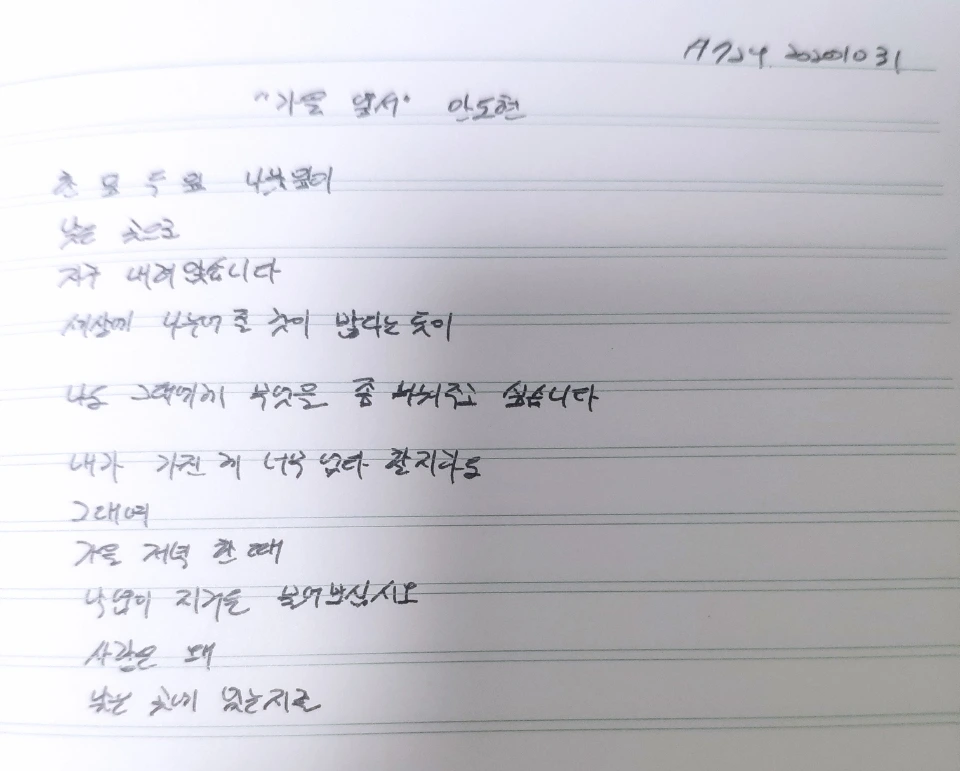 A724 20201031
"가을 엽서" 안도현
한 잎 두 잎 나뭇잎이
낮은 곳으로
자꾸 내려앉습니다
세상에 나누어줄 것이 많다는 듯이
나도 그대에게 무엇을 좀 나눠주고 싶습니다
내가 가진 게 너무 없다 할지라도
그대여
가을 저녁 한 때
낙엽이 지거든 물어보십시오
사랑은 왜
낮은 곳에 있는지를